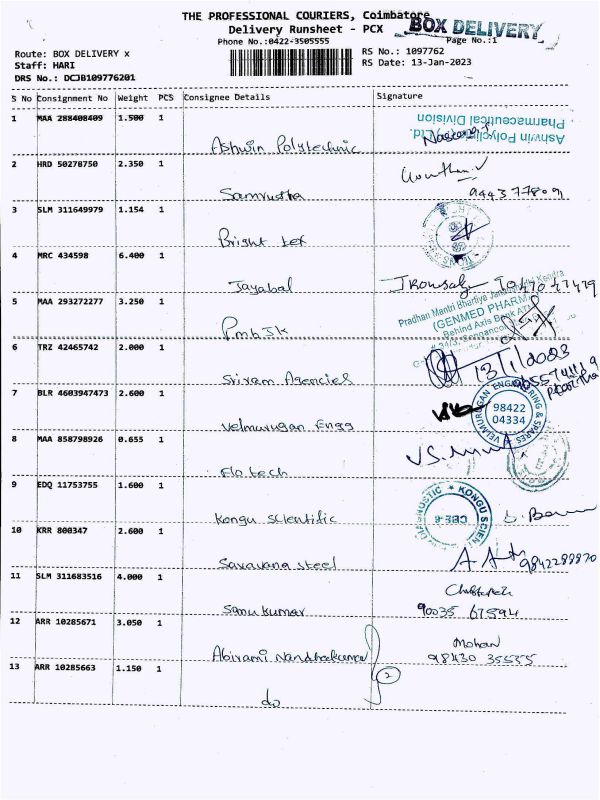 THE PROFESSIONAL COURIERS, Coimbatore
BOX DELIVERY
Delivery Runsheet - PCX
Phone No.:0422-3505555
Page No.:1
Route: BOX DELIVERY x
RS No.: 1097762
Staff: HARI
RS Date: 13-Jan-2023
DRS No.: DCJB109776201
S No Consignment No Weight PCS Consignee Details Signature
1 MAA 288408409 1.500 1 Ashwin Polytechnic
Ashwin Polyclinic Pvt Ltd.
Pharmaceutical Division
2 HRD 50278750 2.350 1 Samrutha
Gowtham.V
9443778091
3 SLM 311649979 1.154 1 Bright tex
4 MRC 434598 6.400 1 Jayabal
5 MAA 293272277 3.250 1 PmbJk
Pradhan Mantri Bhartiya Janaushadhi Kendra
(GENMED PHARMA)
Behind Axis Bank ATM
6 TRZ 42465742 2.000 1 Sriram Agencies
13/1/2023
7 BLR 4603947473 2.600 1 Velmurugan Engg
VELMURUGAN ENGINEERING & SPARES
98422
04334
8 MAA 858798926 0.655 1 Flo tech
9 EDQ 11753755 1.600 1 Kongu Scientific
DIAGNOSTIC ★ KONGU SCIEN
10 KRR 800347 2.600 1 Saravana steel
9842288870
11 SLM 311683516 4.000 1 Samukumar
90035 67594
12 ARR 10285671 3.050 1 Abirami Nandhakumar
Mohan
98430 35535
13 ARR 10285663 1.150 1 do
2